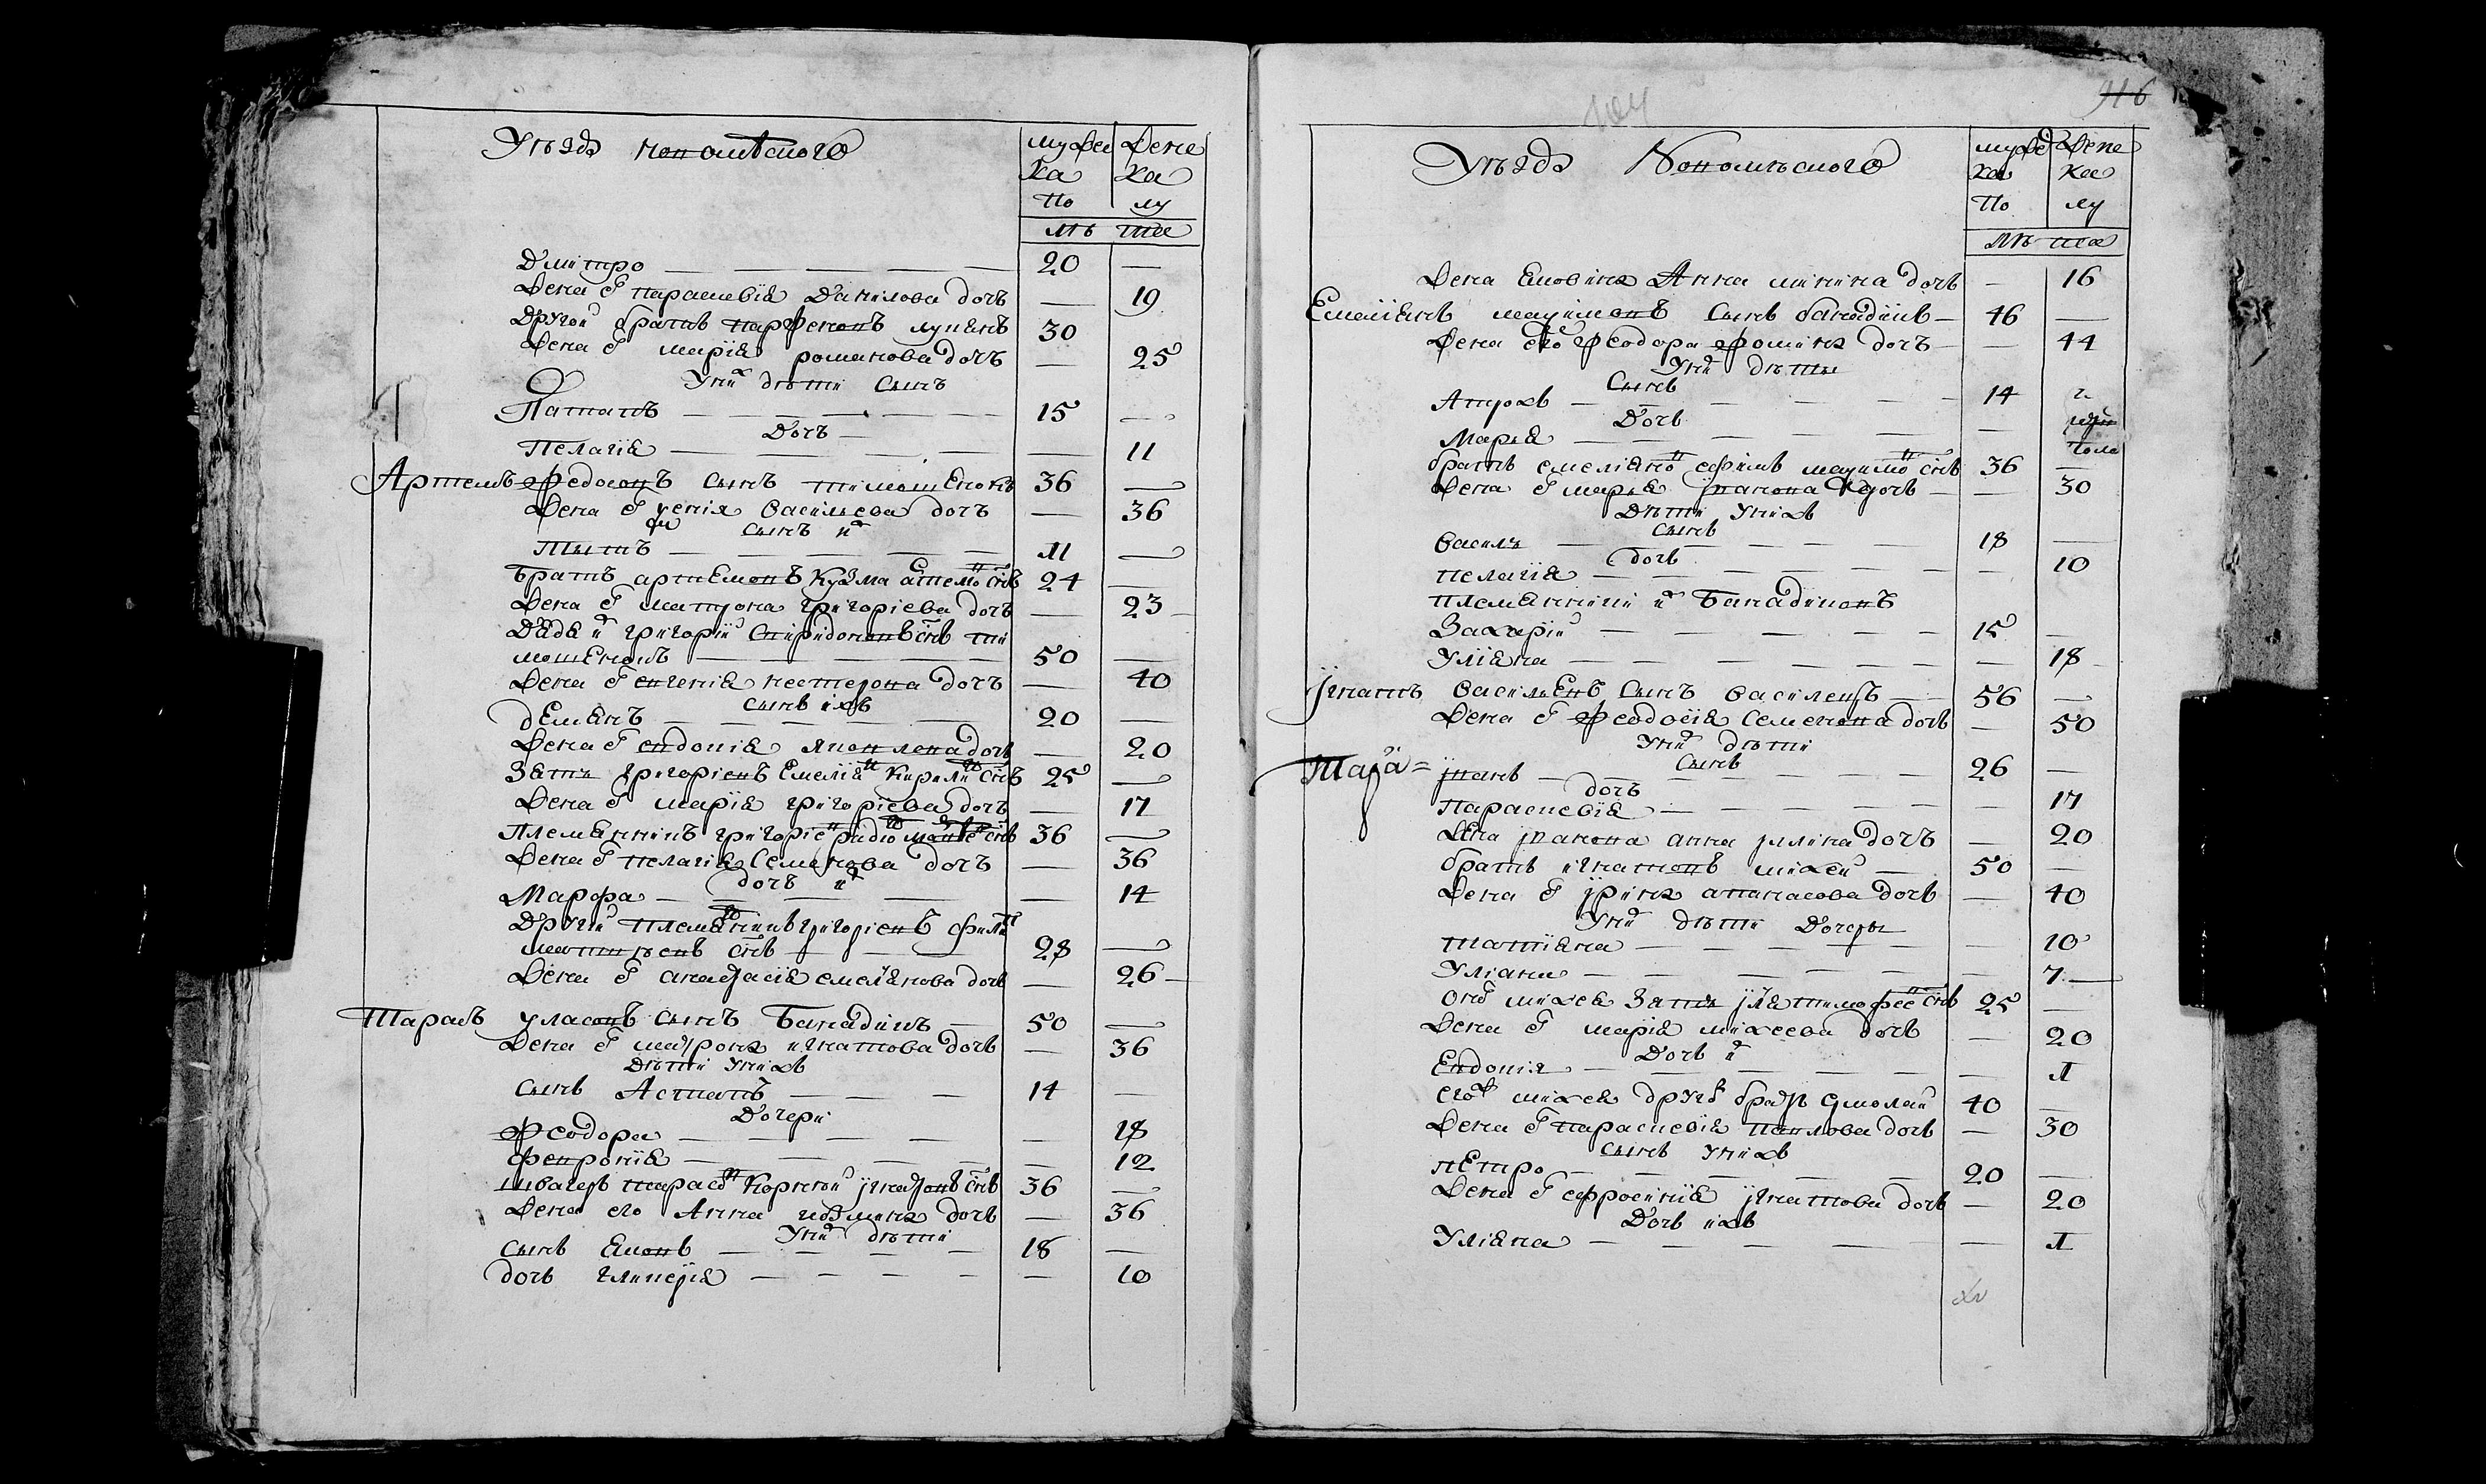 Уѣздъ конотопского
мужеска жене
ска
по лу
лѣ та
Дмитро — 20 —
Жена ег параскевія Данилова дочь — 19
Другой братъ парфенонъ лукянъ 30
Жена ег марія романова дочь — 25
Уних дѣти сынъ
Потапъ — 15 —
Дочь
Пелагія — 11
Артемъ федосовъ сынъ тимошенокъ 36 —
Жена ег ксенія василиева дочь — 36
сынъ их
Титъ — 11 —
братъ артемовъ кузма сынъ 24 —
Жена ег матрона григоріева дочь — 23
Дядя их григорій спиридоновъ снъ ти
мошенокъ — 50 —
Жена ег евгенія нестерова дочь — 40
сынъ ихъ
Демянъ — 20 —
Жена ег евдокія яковлева дочь — 20
Зять григоріевъ емеліянъ кирилъ снъ 25 —
Жена ег марія григоріева дочь — 17
Племянникъ григоріев снъ 36 —
Жена ег пелагія семенова дочь — 36
дочь их
Марфа — 14
Другий племянникъ григоріевъ филип
матвѣевъ снъ — 28 —
Жена ег анастасія емелянова дочь — 26
Тарасъ уласовъ сынъ банадикъ 50 —
Жена ег матрона игнатова дочь — 36
Дѣти унихъ
сынъ Астапъ — 14 —
Дочери
феодора — 18
февронія — 12
швагеръ тарасовъ корнѣй игнатовъ снъ 36 —
Жена его Анна дочь — 36
Уних дѣти
сынъ Яковъ — 18 —
дочь гликерія — 10
116
Уѣздъ Конотопского
мужеска жене
ска
по лу
лѣ та
Жена Яковина Анна минина дочь — 16
Емеліянъ максимовъ сынъ банадикъ — 46 —
Жена его феодора фомина дочь — 44
Уних дѣти
сынъ
Атрохъ — 14
Дочь
Марія —
братъ емеліяновъ ефимъ максимовъ снъ 36 —
Жена ег марія иванова дочь — 30
Дѣти унихъ
сынъ
василь — 18 —
дочь
пелагія — 10
племянники их банадиковъ
Захарій — 15 —
Уліяна — 18
игнатъ василиевъ сынъ василецъ — 56 —
Жена ег феодосія семенова дочь — 50
Уних дѣти
сынъ
иванъ — 26 —
дочь
параскевія — 17
жена иванова анна дочь — 20
братъ игнатовъ михей — 50 —
Жена ег ирина апанасова дочь — 40
Уних дѣти Дочери
татіяна — 10
Уліана — 7
михея зять илія тимофеев снъ 25 —
Жена ег марія михеева дочь — 20
Дочь их
Евдокія — 1
михея другъ братъ ермолай 40 —
Жена ег параскевія павлова дочь — 30
сынъ унихъ
петро — 20 —
Жена ег ефросинія игнатова дочь — 20
Дочь ихъ
Уліяна — 1